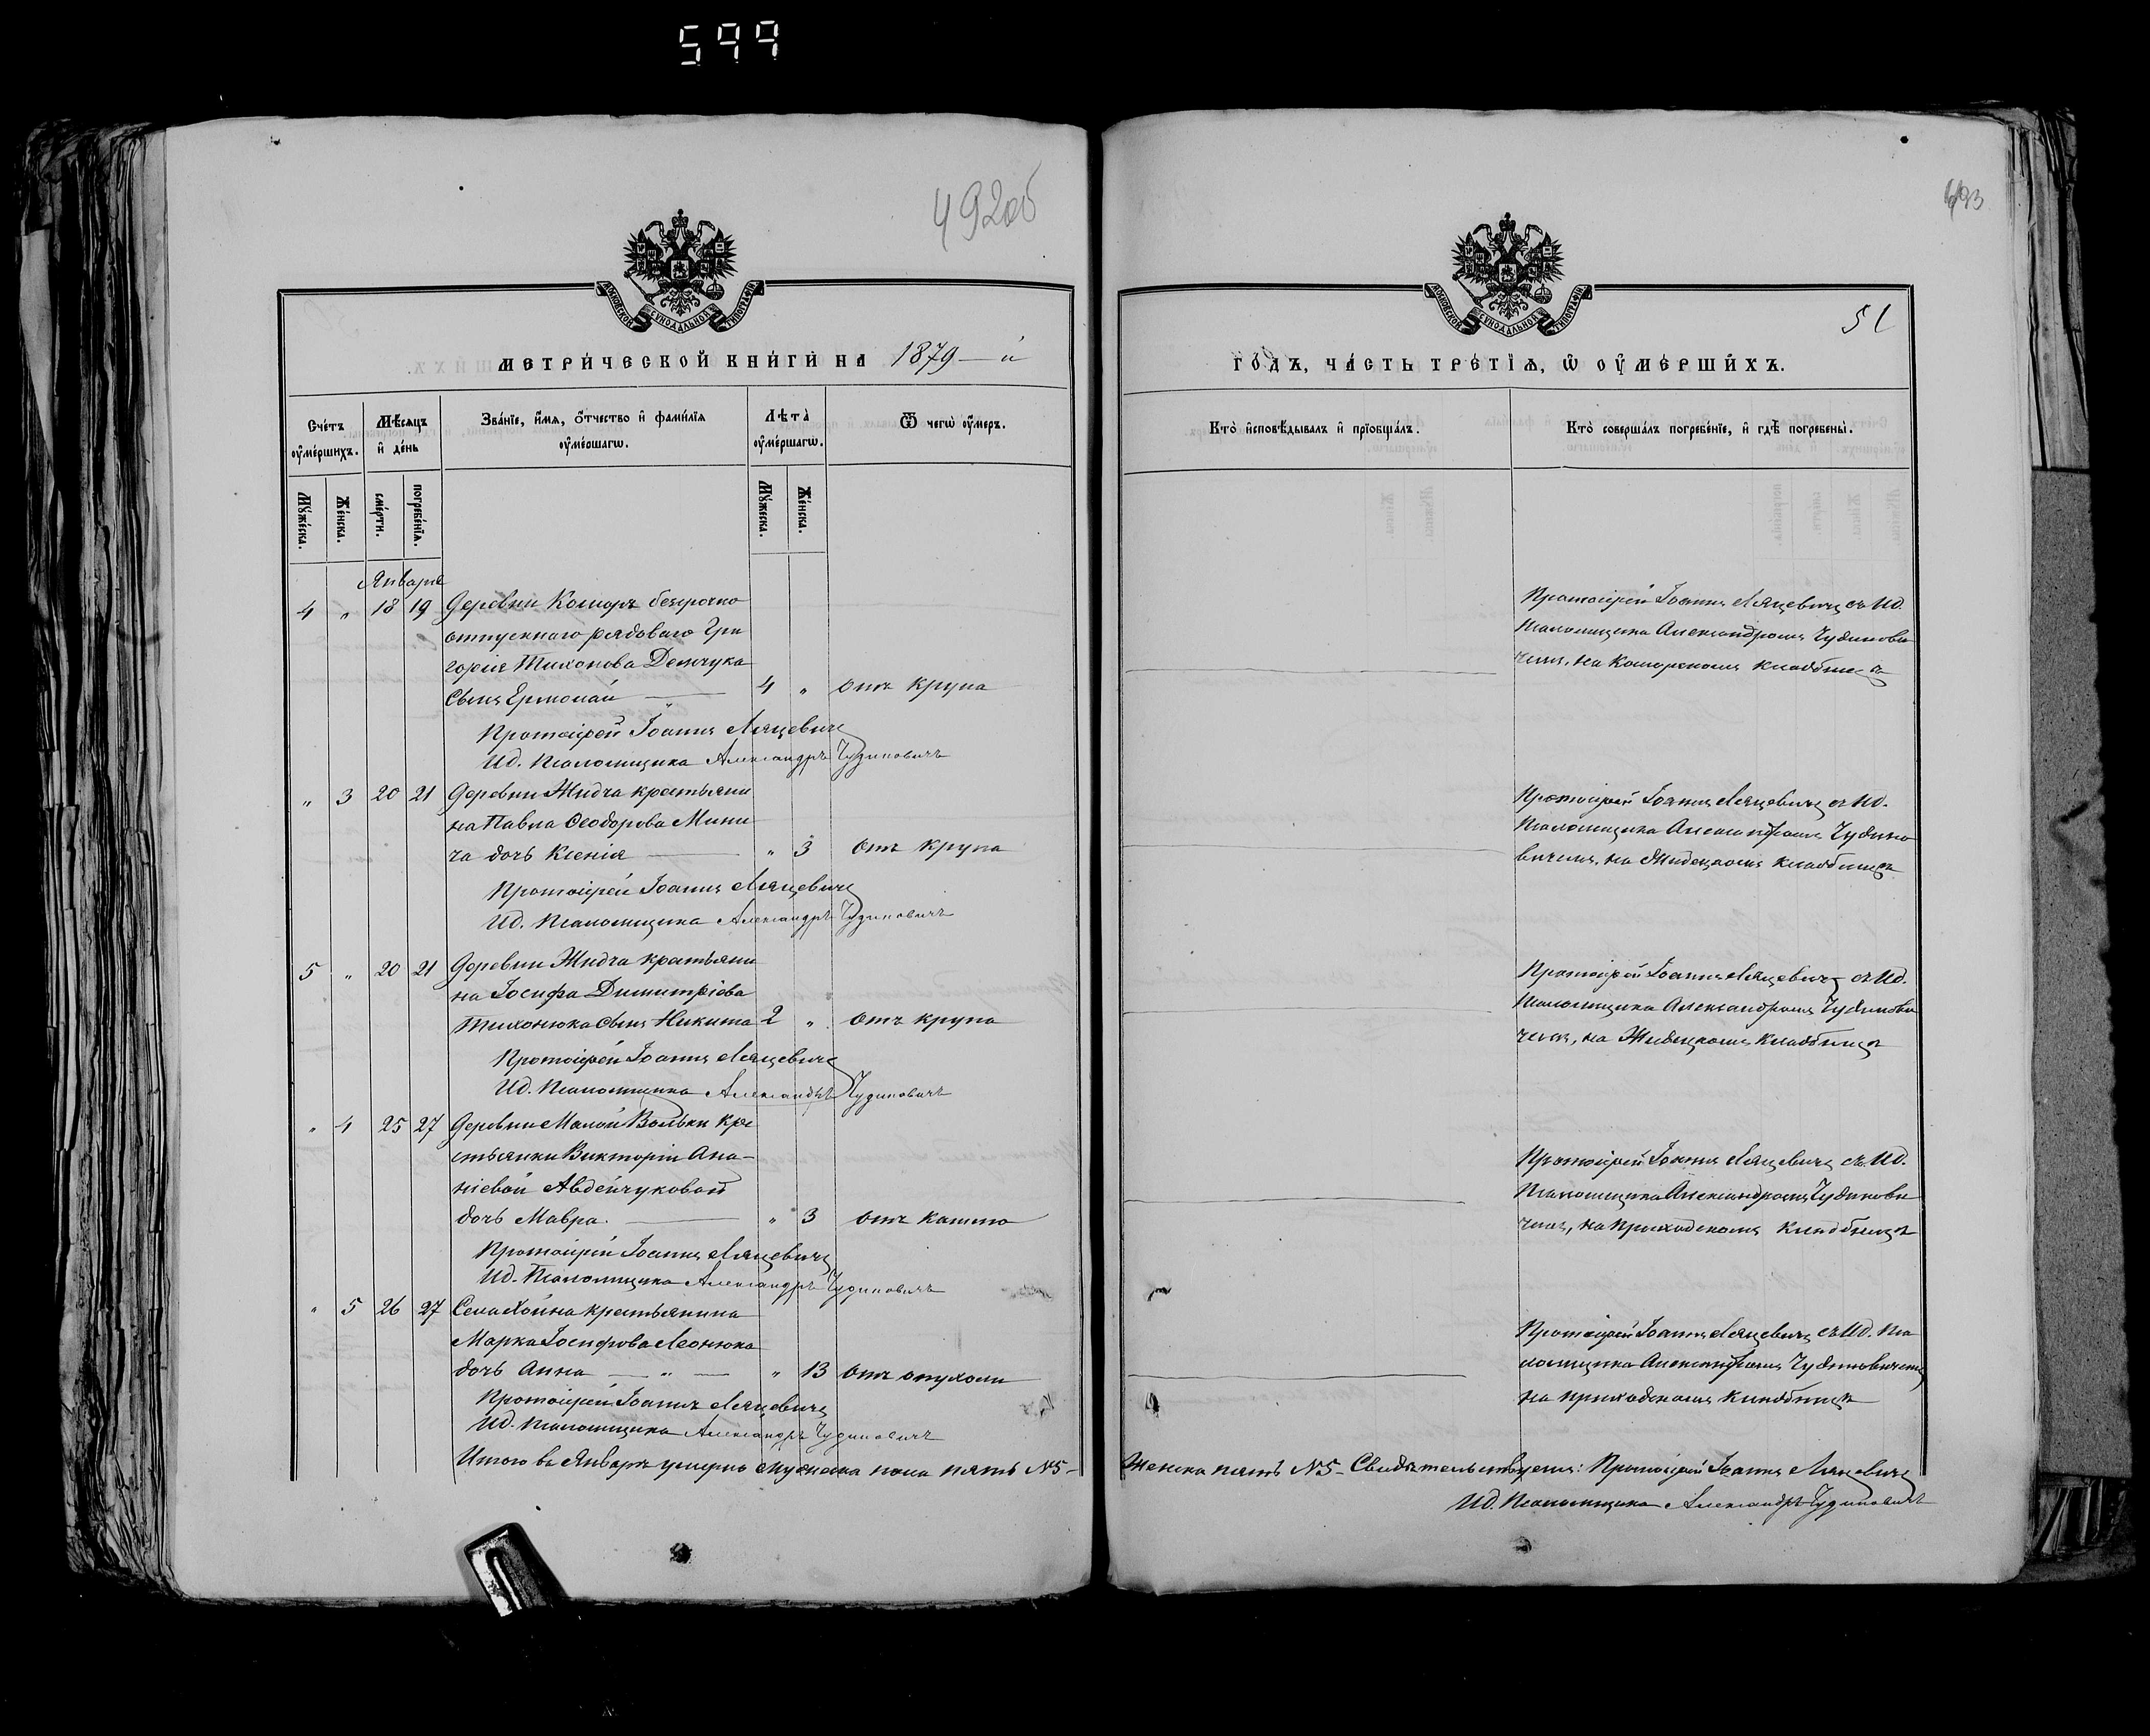 599
492об
493
МОСКОВСКОЙ СУНОДАЛЬНОЙ ТИПОГРАФІИ
МЕТРИ́ЧЕСКОЙ КНИ́ГИ НА 1879-й
Сче́тъ оу҆ме́ршихъ.
Мѣ́сяцъ и҆ де́нь
Зва́нїе, и҆́мя, ѻ҆́тчество и҆ фами́лїя оу҆ме́ршагѡ.
Лѣта̀ оу҆ме́ршагѡ.
Ѿ чегѡ̀ оу҆́меръ.
Мꙋ́жеска.
Же́нска.
сме́рти.
погребе́нїѧ.
Мꙋ́жеска.
Же́нска.
Января
4 " 18 19 Деревни Коморъ безсрочно
отпускнаго рядоваго Гри
горія Тихонова Демчука
Сынъ Ермолай — 4 " отъ крупа
Протоіерей Іоаннъ Ляцевичъ
Ид. Псаломщика Александръ Чудиновичъ
" 3 20 21 Деревни Жидча крестьяни
на Павла Ѳеодорова Мини
ча дочь Ксенія — " 3 отъ крупа
Протоіерей Іоаннъ Ляцевичъ
Ид. Псаломщика Александръ Чудиновичъ
5 " 20 21 Деревни Жидча крестьяни
на Іосифа Димитріова
Тихонюка сынъ Никита 2 " отъ крупа
Протоіерей Іоаннъ Ляцевичъ
Ид. Псаломщика Александръ Чудиновичъ
" 4 25 27 Деревни Малой Вольки кре
стьянки Викторіи Ана-
ніевой Авдейчуковой
дочь Мавра. — " 3 отъ кашлю
Протоіерей Іоаннъ Ляцевичъ
Ид. Псаломщика Александръ Чудиновичъ
" 5 26 27 Села Хойна крестьянина
Марка Іосифова Леонюка
дочь Анна — " — " 13 отъ опухоли
Протоіерей Іоаннъ Ляцевичъ
Ид. Псаломщика Александръ Чудиновичъ
Итого въ Январѣ умерло мужеска пола пять №5-
МОСКОВСКОЙ СУНОДАЛЬНОЙ ТИПОГРАФІИ
51
ГО́ДЪ, ЧА́СТЬ ТРЕ́ТЇѦ, Ѡ҆ ОУ҆МЕ́РШИХЪ.
Кто̀ и҆сповѣ́дывалъ и҆ прїобща́лъ.
Кто̀ соверша́лъ погребе́нїе, и҆ гдѣ̀ погребены̀.
Протоіерей Іоаннъ Ляцевичъ съ Ид.
Псаломщика Александромъ Чудинови
чемъ, на Коморскомъ кладбищѣ
Протоіерей Іоаннъ Ляцевичъ съ Ид.
Псаломщика Александромъ Чудино
вичемъ, на Жидецкомъ кладбищѣ
Протоіерей Іоаннъ Ляцевичъ съ Ид.
Псаломщика Александромъ Чудинови
чемъ, на Жидецкомъ кладбищѣ
Протоіерей Іоаннъ Ляцевичъ съ Ид.
Псаломщика Александромъ Чудинови
чемъ, на Приходскомъ кладбищѣ
Протоіерей Іоаннъ Ляцевичъ съ Ид. Пса
ломщика Александромъ Чудиновичемъ
на приходскомъ кладбищѣ
Женска пять №5- Свидѣтельствуемъ: Протоіерей Іоаннъ Ляцевичъ
Ид. Псаломщика Александръ Чудиновичъ